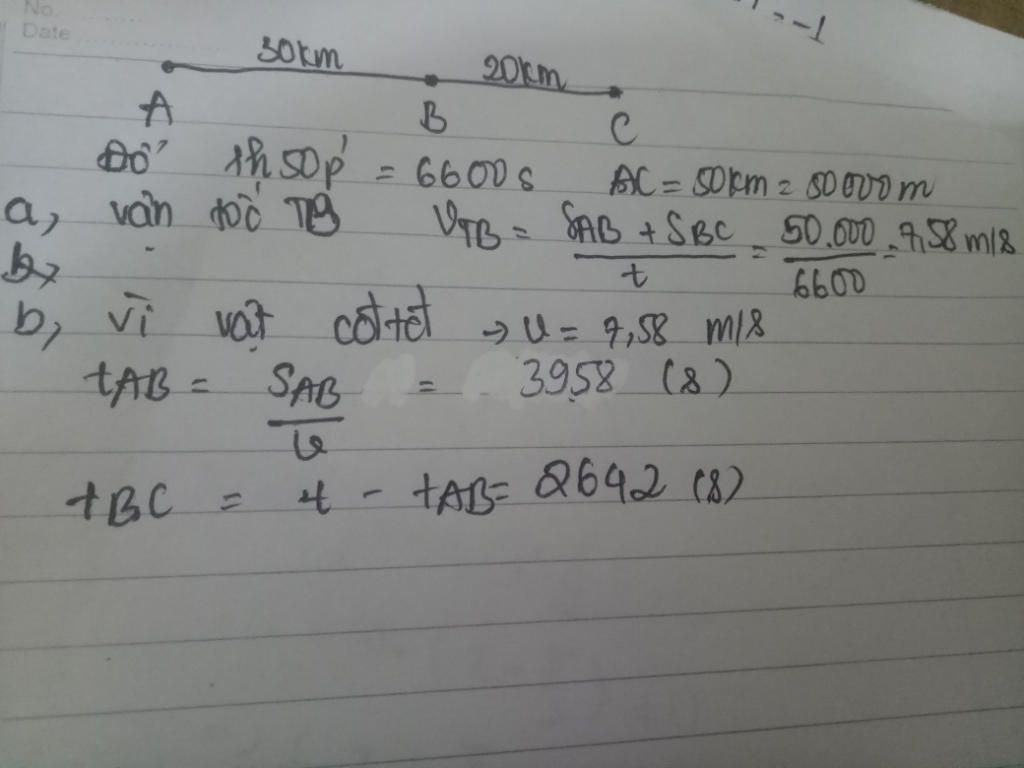 No.
Date
= -1
30km 20km
A B C
Đổi 1h50p' = 6600s AC = 50km = 50000m
a, vận tốc TB VTB = SAB + SBC / t = 50.000 / 6600 = 7,58 m/s
b,
b, vì vật cđtđ → v = 7,58 m/s
tAB = SAB / v = 3958 (s)
tBC = t - tAB = 2642 (s)